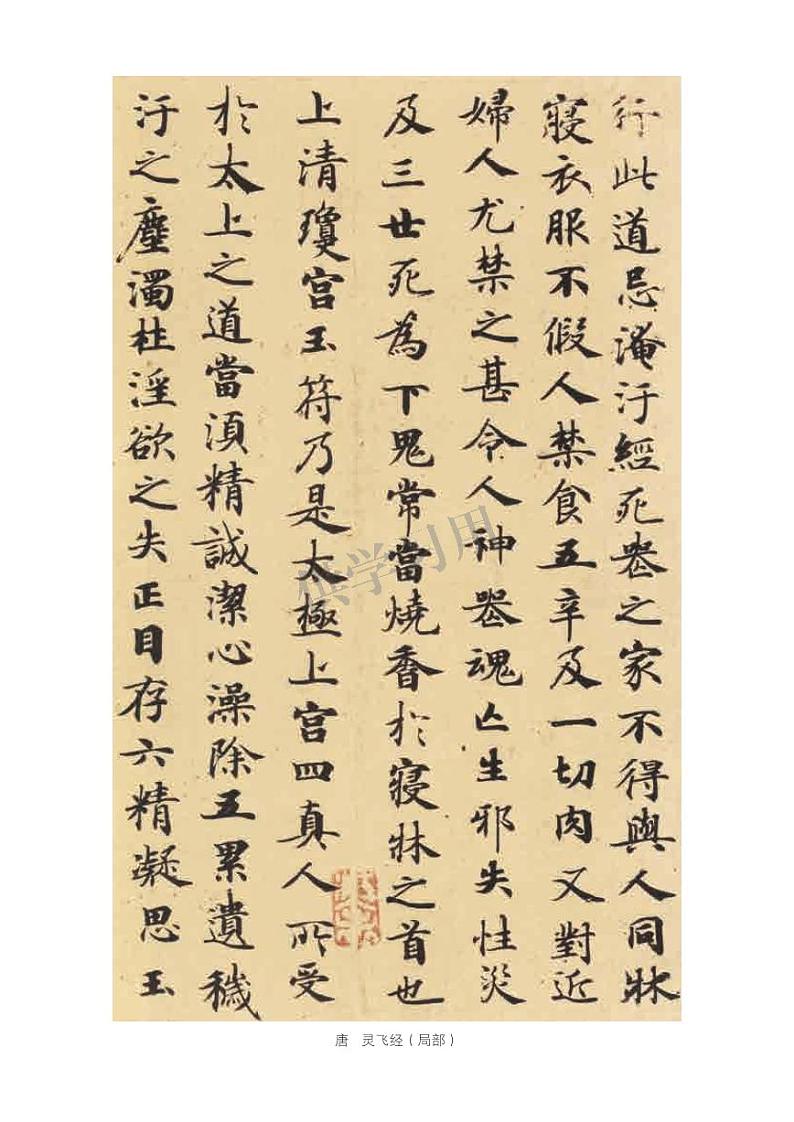 行此道忌淹汙經死䘮之家不得與人同牀
寢衣服不假人禁食五辛及一切肉又對近
婦人尤禁之甚令人神䘮魂亡生邪失性災
及三世死為下鬼常當燒香於寢牀之首也
上清瓊宮玉符乃是太極上宮四真人所受
於太上之道當須精誠潔心澡除五累遺穢
汙之塵濁杜淫欲之失正目存六精凝思玉
棋学利用
唐 灵飞经（局部）